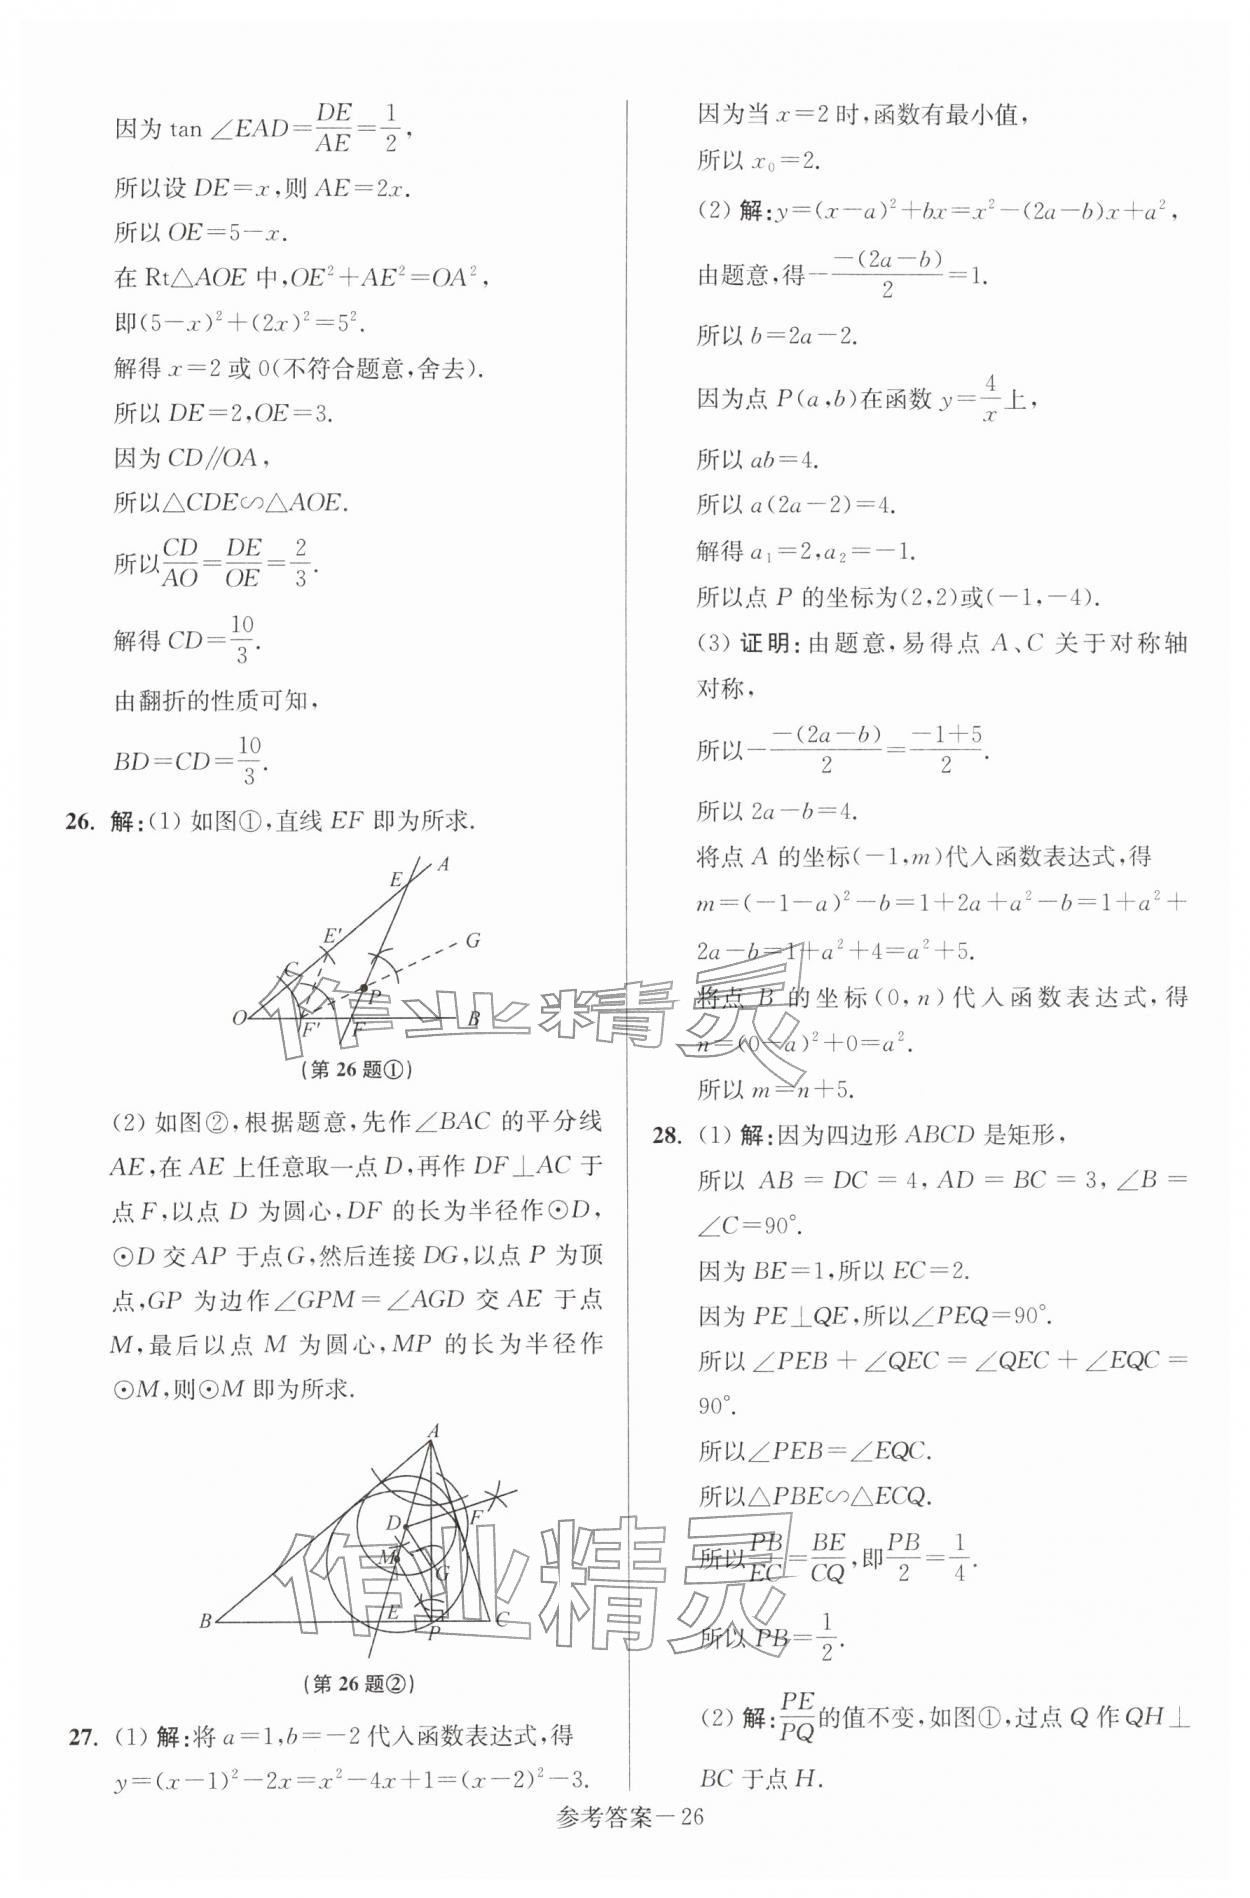 因为 tan ∠EAD=DE/AE=1/2,
所以设 DE=x,则 AE=2x.
所以 OE=5-x.
在 Rt△AOE 中,OE²+AE²=OA²,
即(5-x)²+(2x)²=5².
解得 x=2 或 0(不符合题意,舍去).
所以 DE=2,OE=3.
因为 CD∥OA,
所以△CDE∽△AOE.
所以CD/AO=DE/OE=2/3.
解得 CD=10/3.
由翻折的性质可知,
BD=CD=10/3.
26. 解:(1) 如图①,直线 EF 即为所求.
A
E
E'
G
C
P
O
F'
F
B
(第 26 题①)
(2) 如图②,根据题意,先作∠BAC 的平分线
AE,在 AE 上任意取一点 D,再作 DF⊥AC 于
点 F,以点 D 为圆心,DF 的长为半径作⊙D,
⊙D 交 AP 于点 G,然后连接 DG,以点 P 为顶
点,GP 为边作∠GPM=∠AGD 交 AE 于点
M,最后以点 M 为圆心,MP 的长为半径作
⊙M,则⊙M 即为所求.
A
D
F
M
G
E
B
P
C
(第 26 题②)
27. (1) 解:将 a=1,b=-2 代入函数表达式,得
y=(x-1)²-2x=x²-4x+1=(x-2)²-3.
因为当 x=2 时,函数有最小值,
所以 x₀=2.
(2) 解:y=(x-a)²+bx=x²-(2a-b)x+a²,
由题意,得-(-(2a-b))/2=1.
所以 b=2a-2.
因为点 P(a,b)在函数 y=4/x上,
所以 ab=4.
所以 a(2a-2)=4.
解得 a₁=2,a₂=-1.
所以点 P 的坐标为(2,2)或(-1,-4).
(3) 证明:由题意,易得点 A、C 关于对称轴
对称,
所以-(-(2a-b))/2=(-1+5)/2.
所以 2a-b=4.
将点 A 的坐标(-1,m)代入函数表达式,得
m=(-1-a)²-b=1+2a+a²-b=1+a²+
2a-b=1+a²+4=a²+5.
将点 B 的坐标(0,n)代入函数表达式,得
n=(0-a)²+0=a².
所以 m=n+5.
28. (1) 解:因为四边形 ABCD 是矩形,
所以 AB=DC=4,AD=BC=3,∠B=
∠C=90°.
因为 BE=1,所以 EC=2.
因为 PE⊥QE,所以∠PEQ=90°.
所以∠PEB+∠QEC=∠QEC+∠EQC=
90°.
所以∠PEB=∠EQC.
所以△PBE∽△ECQ.
所以PB/EC=BE/CQ,即PB/2=1/4.
所以 PB=1/2.
(2) 解:PE/PQ的值不变,如图①,过点 Q 作 QH⊥
BC 于点 H.
作业精灵
作业精灵
参考答案—26